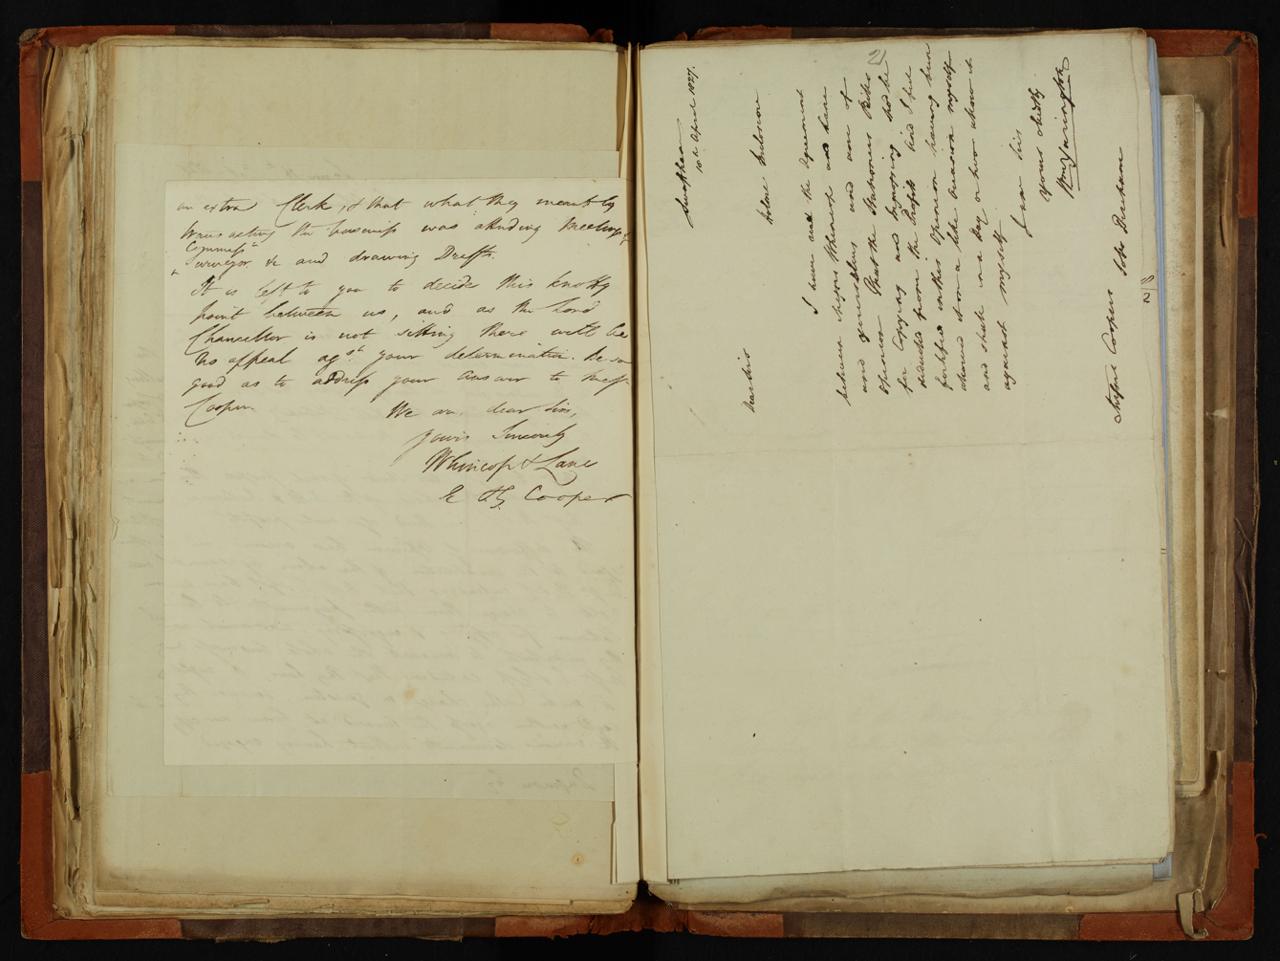 an extra Clerk, & that what they meant by
transacting the business was attending Meetings of
Commiss.rs
Surveyor &c and drawing Drafts.
It is left to you to decide this knotty
point between us, and as the Lord
Chancellor is not sitting there will be
no appeal ag.st your determination. be so
good as to address your answer to Mess.rs
Cooper.
We are, dear Sirs,
yours Sincerely
Whincop & Lane
E & G Cooper
2
10th April 1827.
Dear Sirs
I have read the Agreement
between Messrs Whincop and
and yourselves and am of
Opinion That the Stationers Bills
for Copying and Ingrossing sho.d be
deducted from the Profits and I feel
fortified in this Opinion having been
allowed it on a like occasion myself
and which in a day or two allow it
against myself
I am Sirs
yours obedtly
Wm Yarington
Messrs Coopers
2/8